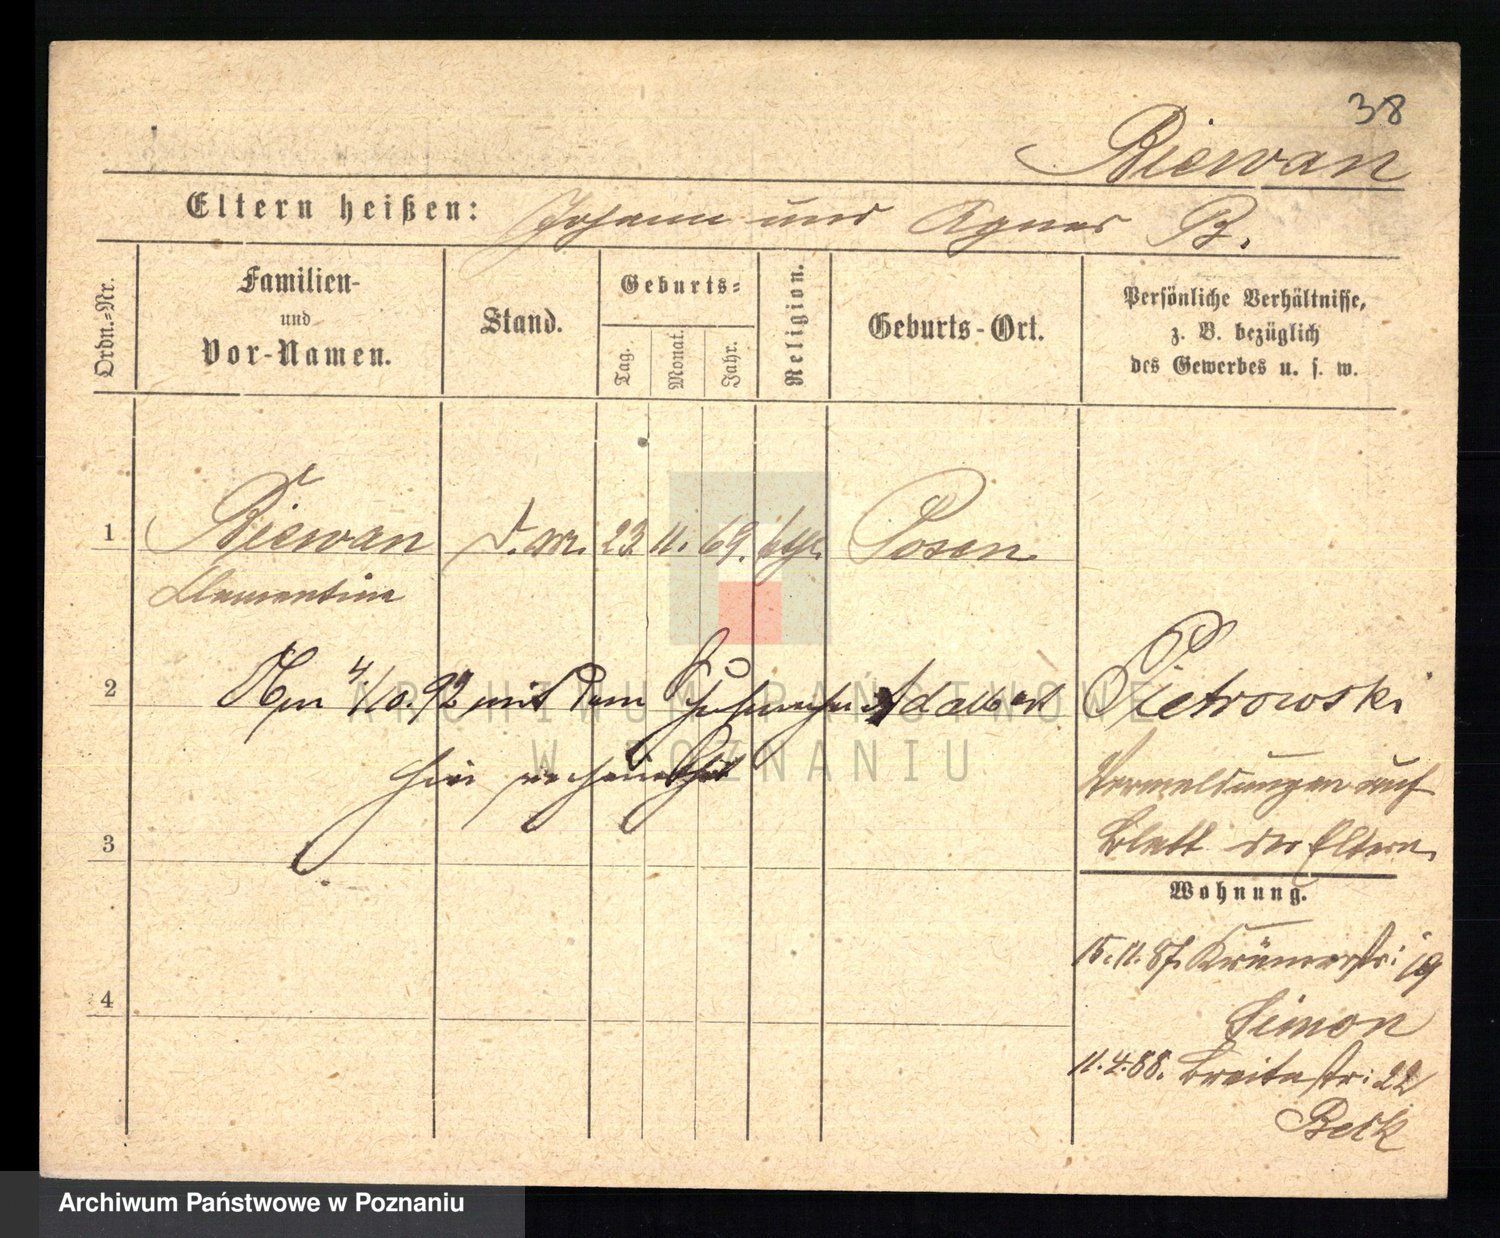 38
Biewan
Eltern heißen: Johann und Agnes B.
Ordn.-Nr.
Familien-
und
Vor-Namen.
Stand.
Geburts-
Tag.
Monat.
Jahr.
Religion.
Geburts-Ort.
Persönliche Verhältnisse,
z. B. bezüglich
des Gewerbes u. s. w.
1 Biewan 23 11. 69. Posen
Clementine
2 Am 4/10. 92 mit dem Schuhmacher Adalbert Pietrowski
hier verheirathet
Vermeldungen auf
Blatt der Eltern
3
Wohnung.
15.11.87. Krämerstr: 19
Simon
4
11.4.88. Breitestr: 22
Beck
ARCHIWUM PAŃSTWOWE
W POZNANIU
Archiwum Państwowe w Poznaniu